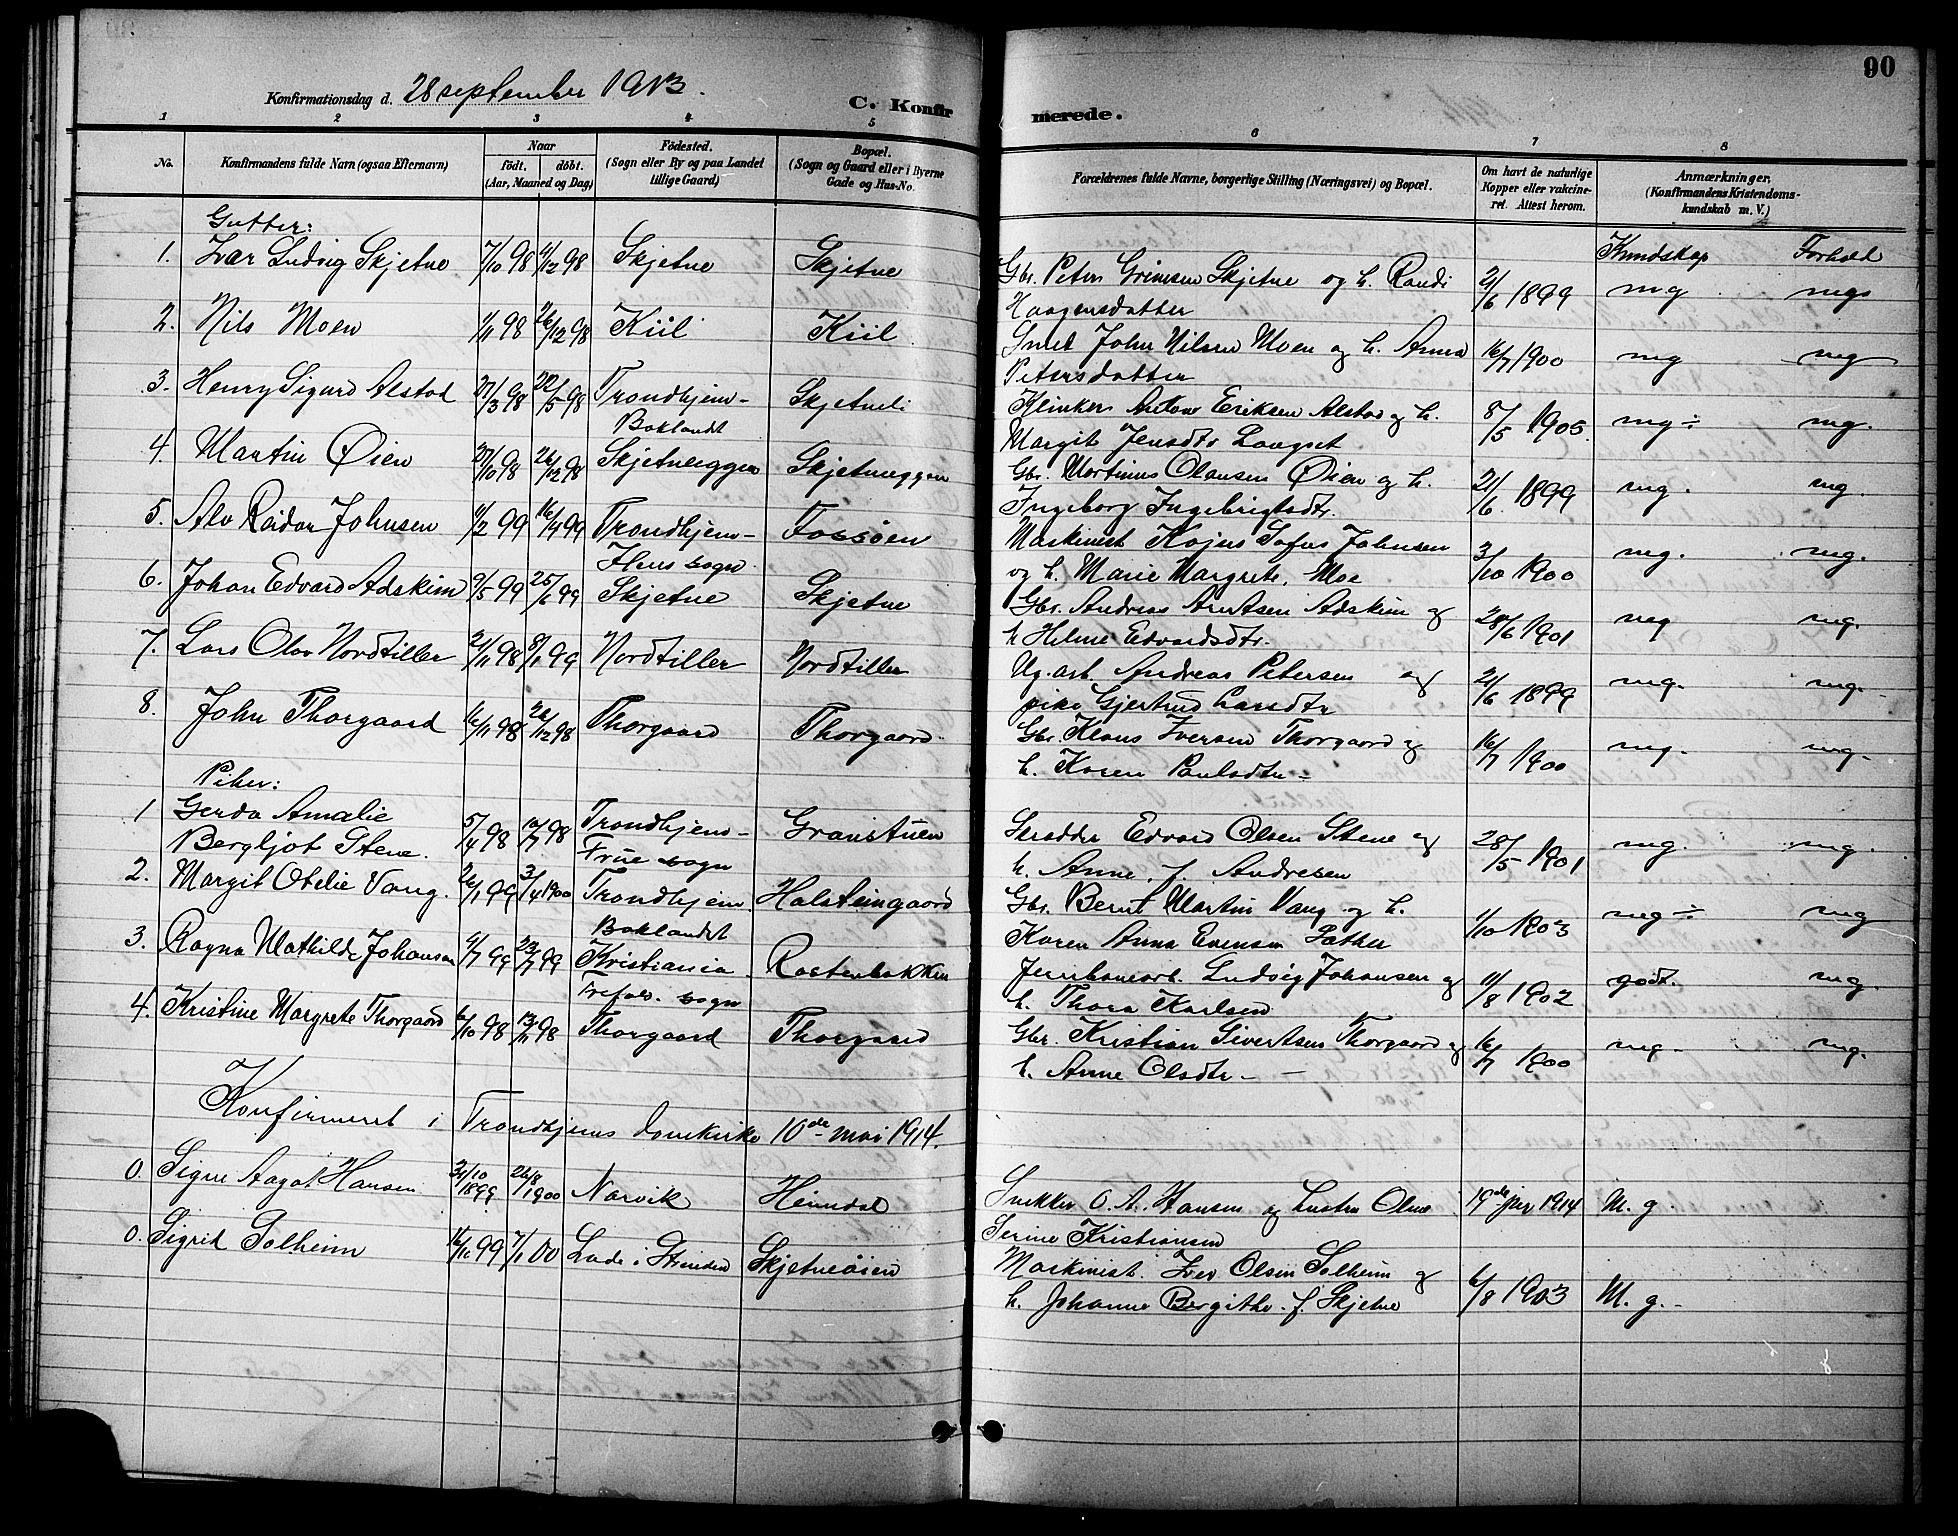 90
Konfirmationsdag d. 28 september 1913.
C. Konfirmerede.
1 2 3 4 5 6 7 8
No. Konfirmandens fulde Navn (ogsaa Efternavn) Naar født, døbt. (Aar, Maaned og Dag) Födested. (Sogn eller By og paa Landet tillige Gaard) Bopæl. (Sogn og Gaard eller i Byerne Gade og Hus-No. Forældrenes fulde Navne, borgerlige Stilling (Næringsvei) og Bopæl. Om havt de naturlige Kopper eller vakcineret. Attest herom. Anmærkninger, (Konfirmandens Kristendomskundskab m. V.)
Gutter: Kundskap Forhold
1. Ivar Ludvig Skjetne 7/10 98 11/12 98 Skjetne Skjetne Gbr. Peter Grimsen Skjetne og h. Randi 21/6 1899 mg mg
Haagensdatter
2. Nils Moen 1/11 98 26/12 98 Kiil Kiil Smed John Nilsen Moen og h. Anna 16/7 1900 mg mg
Petersdatter
3. Henry Sigurd Alstad 27/3 98 22/5 98 Trondhjem - Skjetneli Klinker Anton Eriksen Alstad og h. 8/5 1905. mg ÷ mg.
Baklandt Margit Jensdtr Langset
4. Martin Øien 27/10 98 26/12 98 Skjetneggen Skjetneggen Gbr. Martinus Olausen Øien og h. 21/6 1899 mg. mg.
Ingeborg Ingebrigtsdtr.
5. Alv Reidar Johnsen 11/2 99 16/4 99 Trondhjem - Fossøen Maskinist Kajus Sofus Johnsen 3/10 1900 mg. mg.
Ilens sogn og h. Marie Margrete, Moe
6. Johan Edvard Adskim 9/5 99 25/6 99 Skjetne Skjetne Gbr. Andreas Arntsen Adskim og 28/6 1901 mg mg.
h Heline Edvardsdtr.
7. Lars Olav Nordtiller 21/11 98 8/1 99 Nordtiller Nordtiller Ug. arb. Andreas Petersen og 21/6 1899 mg. mg.
pike Gjertrud Larsdtr
8. John Thorgaard 16/11 98 26/12 98 Thorgaard Thorgaard. Gbr. Klaus Iversen Thorgaard og 16/7 1900 mg. mg.
h. Karen Paulsdtr -
Piker:
1 Gerda Amalie
Bergljot Stene. 5/4 98 10/7 98 Trondhjem - Granstuen Skrædder Edvard Olsen Stene og 28/5 1901 mg. mg.
Frue sogn h. Anne, f. Andresen
2. Margit Otelie Vang. 26/1 99 3/4 1900 Trondhjem Halsteingaard Gbr. Bernt Martin Vang og h. 1/10 1903 mg ÷ mg
Baklandet Karen Anna Evensen Sæther
3. Ragna Mathilde Johansen 4/7 99 23/7 99 Kristiania Rostenbakken Jernbanearb. Ludvig Johansen og 11/8 1902 godt. mg
Trefold. sogn h. Thora Karlsen
4. Kristine Margrete Thorgaard 6/10 98 13/11 98 Thorgaard Thorgaard Gbr. Kristian Sivertsen Thorgaard og 16/7 1900 mg. mg.
h. Anne Olsdtr -
Konfirmeret i Trondhjems domkirke 10de mai 1914.
0. Signe Aagot Hansen 31/10 1899 26/8 1900 Narvik Heimdal Snekker O. A. Hansen og hustru Oline 19de jan 1914 M. g.
Serine Kristiansen
0. Sigrid Solheim 16/11 99 7/1 00 Lade i Strinden Skjetneøien Maskinist Iver Olsen Solheim og 6/8 1903 M. g. -
h. Johanne Bergithe f. Skjetne